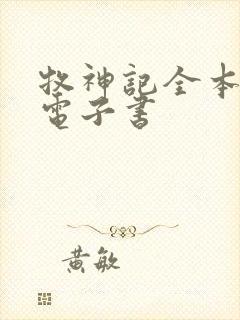 牧神記全本
電子書
黃敏